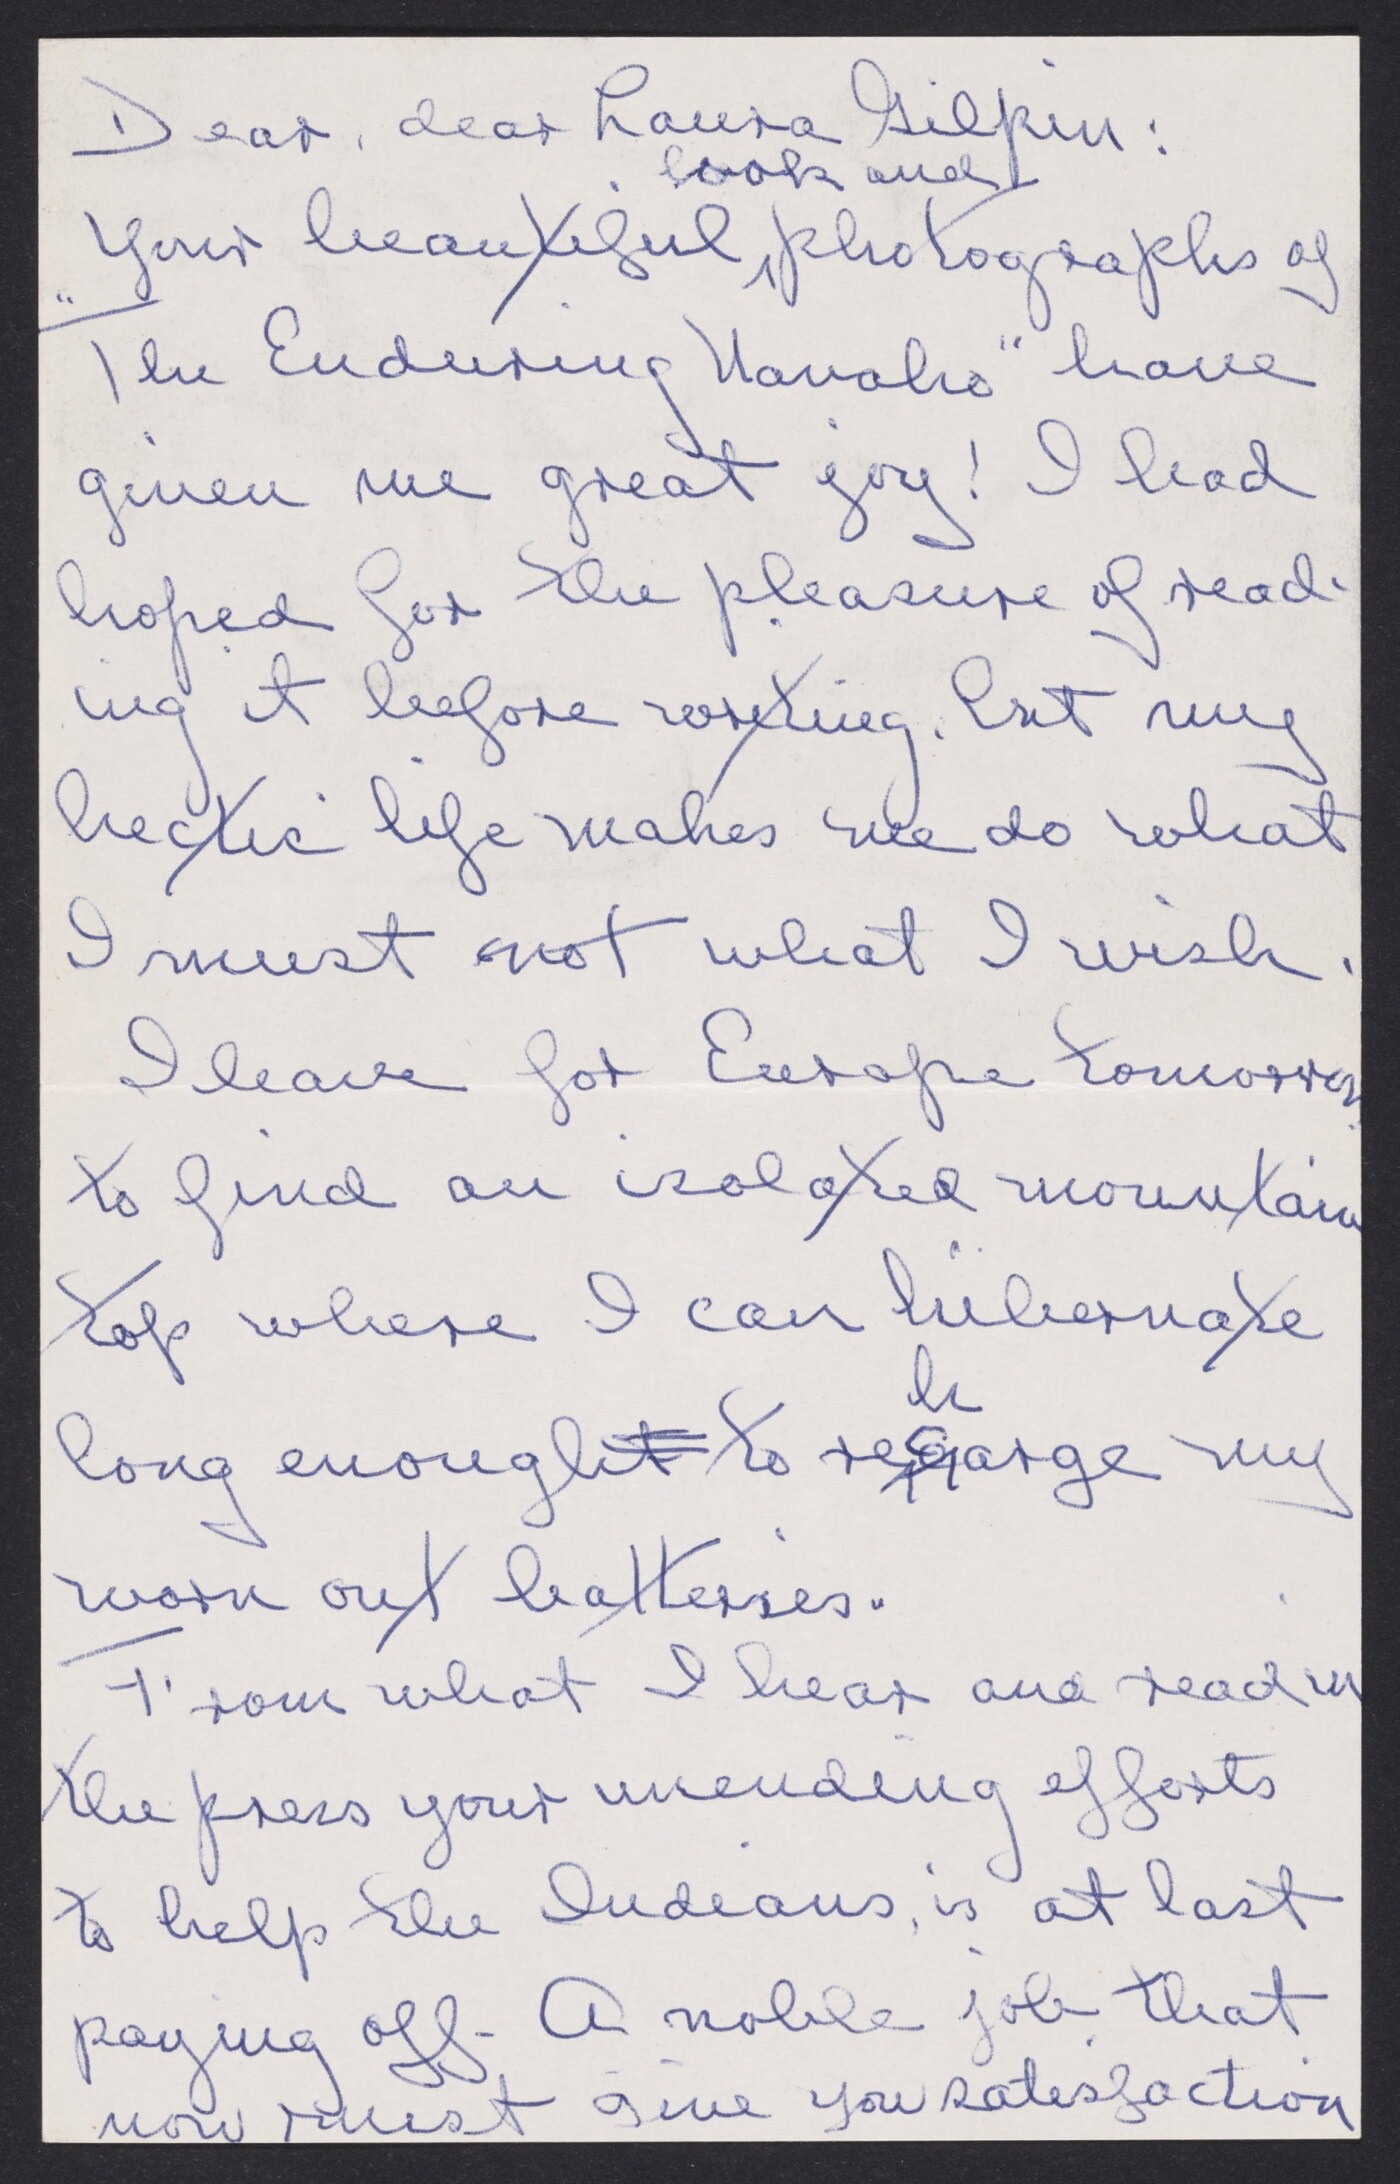 Dear, dear Laura Gilpin:
book and
Your beautiful photographs of
"The Enduring Navaho" have
given me great joy! I had
hoped for the pleasure of read-
ing it before writing. But my
hectic life makes me do what
I must not what I wish.
I leave for Europe tomorrow
to find an isolated mountain
top where I can hibernate
long enough to recharge my
worn out batteries.
From what I hear and read in
the press your unending efforts
to help the Indians, is at last
paying off- A noble job that
now must give you satisfaction